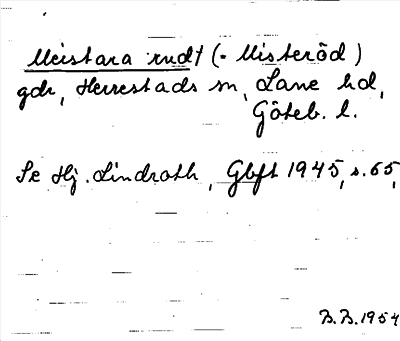 Meistara rudt (= Misteröd)
gdr, Herrestads sn, Lane hd,
Göteb. l.
Se Hj. Lindroth, Gbft 1945, s. 65,
B.B. 1954